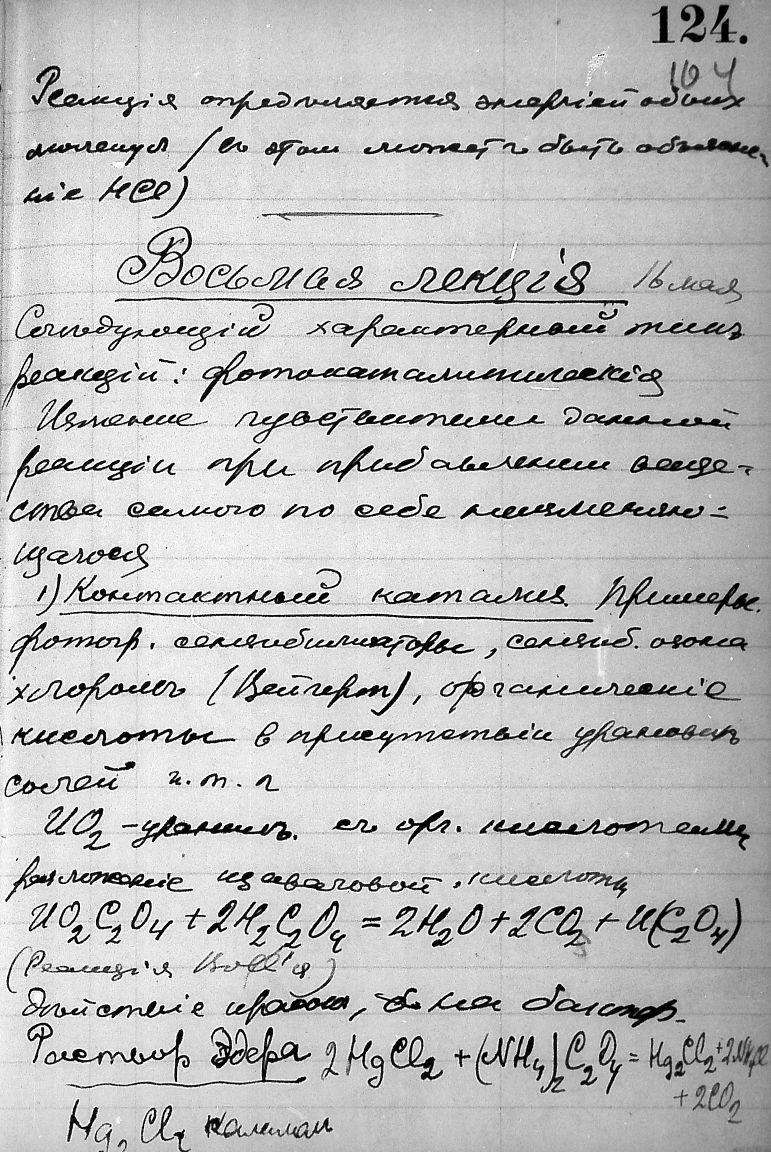 124.
104
Реакція определяется энергіей обоих
молекул (в этом может быть объясне-
ніе HCl)
Восьмая лекція 16 мая
Слѣдующій характерный типъ
реакцій: фотокаталитическія
данной
реакціи при прибавлении веще-
ства самого по себе неизменяю=
щагося
1) Контактный катализ. Примеры.
фотогр. сенсибилизаторы, сенсиб. озона
хлоромъ (Вейгерт), органическіе
кислоты в присутствіи урановых
солей и.т.п
UO2 – уранилъ. съ орг. кислотами
разложеніе щавелевой кислоты
UO2C2O4 + 2H2C2O4 = 2H2O + 2CO2 + U(C2O4)
(Реакція
Дѣйствіе на бактер.
Раствор Эдера 2HgCl2 + (NH4)2C2O4 = Hg2Cl2 + 2NH4Cl
+ 2CO2
Hg2Cl2 каломель